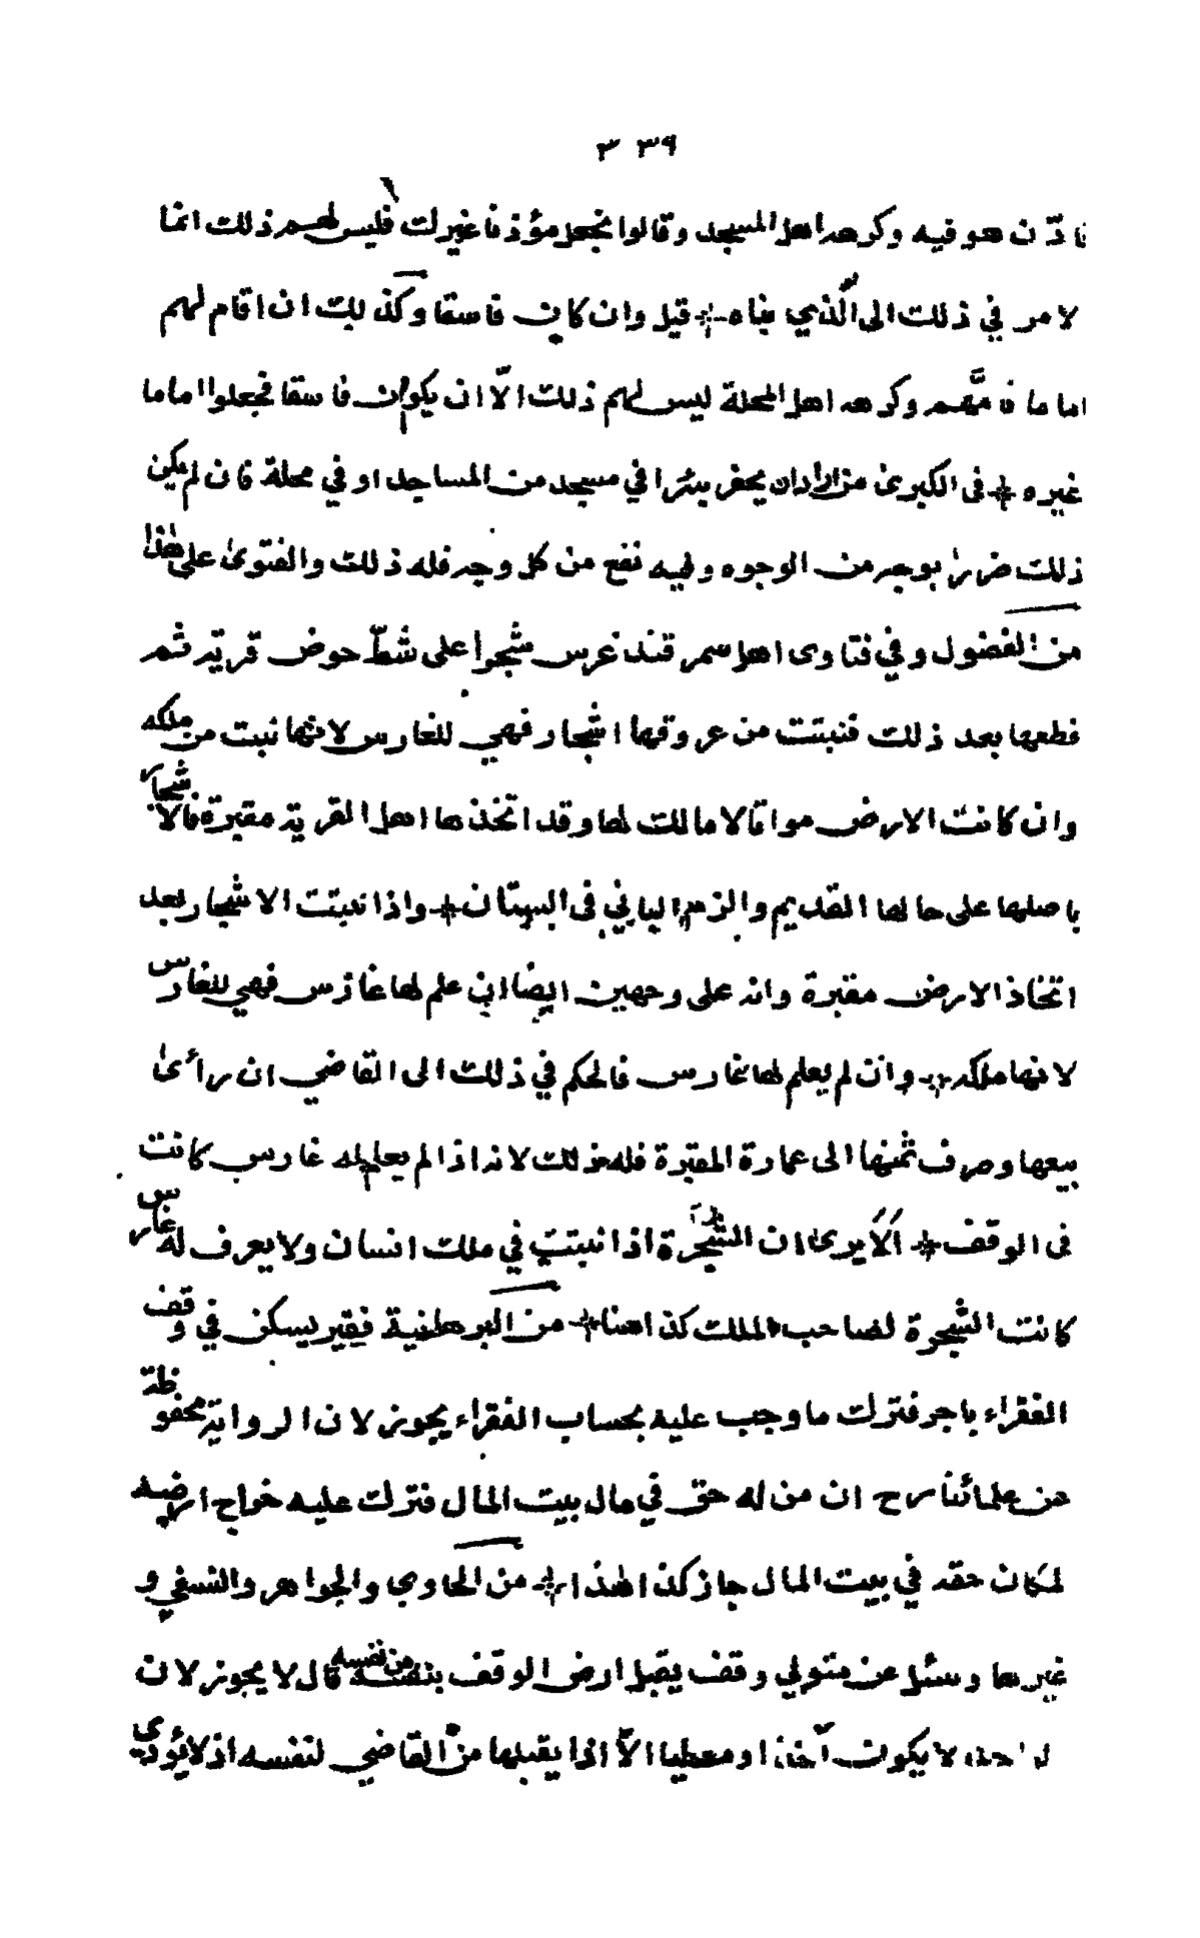 ٣٣٩
فاذّن هو فيه وكرهه اهل المسجد وقالوا نجعل مؤذنا غيرك فليس لهم ذلك انما
لامر في ذلك الى الّذي بناه قيل وان كان فاسقا وكذلك ان اقام لهم
اماما فامّهم وكرهه اهل المحلة ليس لهم ذلك الّا ان يكون فاسقا فجعلوا اماما
غيره في الكبرى من اراد ان يحفر بئرا في مسجد من المساجد او في محلة فان لم يكن
ذلك ضررا بوجه من الوجوه وفيه نفع من كل وجه فله ذلك والفتوى على هذا
من الفضول وفي فتاوى اهل سمرقند غرس شجرا على شطّ حوض قرية ثم
قطعها بعد ذلك فنبتت من عروقها اشجار فهي للغارس لانها نبت من ملكه
وان كانت الارض مواتا لا مالك لها وقد اتخذها اهل القرية مقبرة فالاشجار
باصلها على حالها القديم والزم الباني في البستان واذا نبتت الاشجار بعد
اتخاذ الارض مقبرة وانه على وجهين ايضا ان علم لها غارس فهي للغارس
لانها ملكه وان لم يعلم لها غارس فالحكم في ذلك الى القاضي ان رأى
بيعها وصرف ثمنها الى عمارة المقبرة فله ذلك لانه اذا لم يعلم له غارس كانت
في الوقف الا يرى ان الشجرة اذا نبتت في ملك انسان ولا يعرف له غارس
كانت الشجرة لصاحب الملك كذا هنا من البرهانية فقير يسكن في وقف
الفقراء باجر فترك ما وجب عليه بحساب الفقراء يجوز لان الرواية محفوظة
عن علمائنا رح ان من له حق في مال بيت المال فترك عليه خراج ارضه
لمكان حقه في بيت المال جاز كذا هذا من الحاوي والجواهر والنسفي و
غيرها وسئل عن متولي وقف يقبل ارض الوقف بنفسه من نفسه قال لا يجوز لان
لا يكون آخذا ومعطيا الاّ اذا يقبلها من القاضي لنفسه اذ لا يؤدي